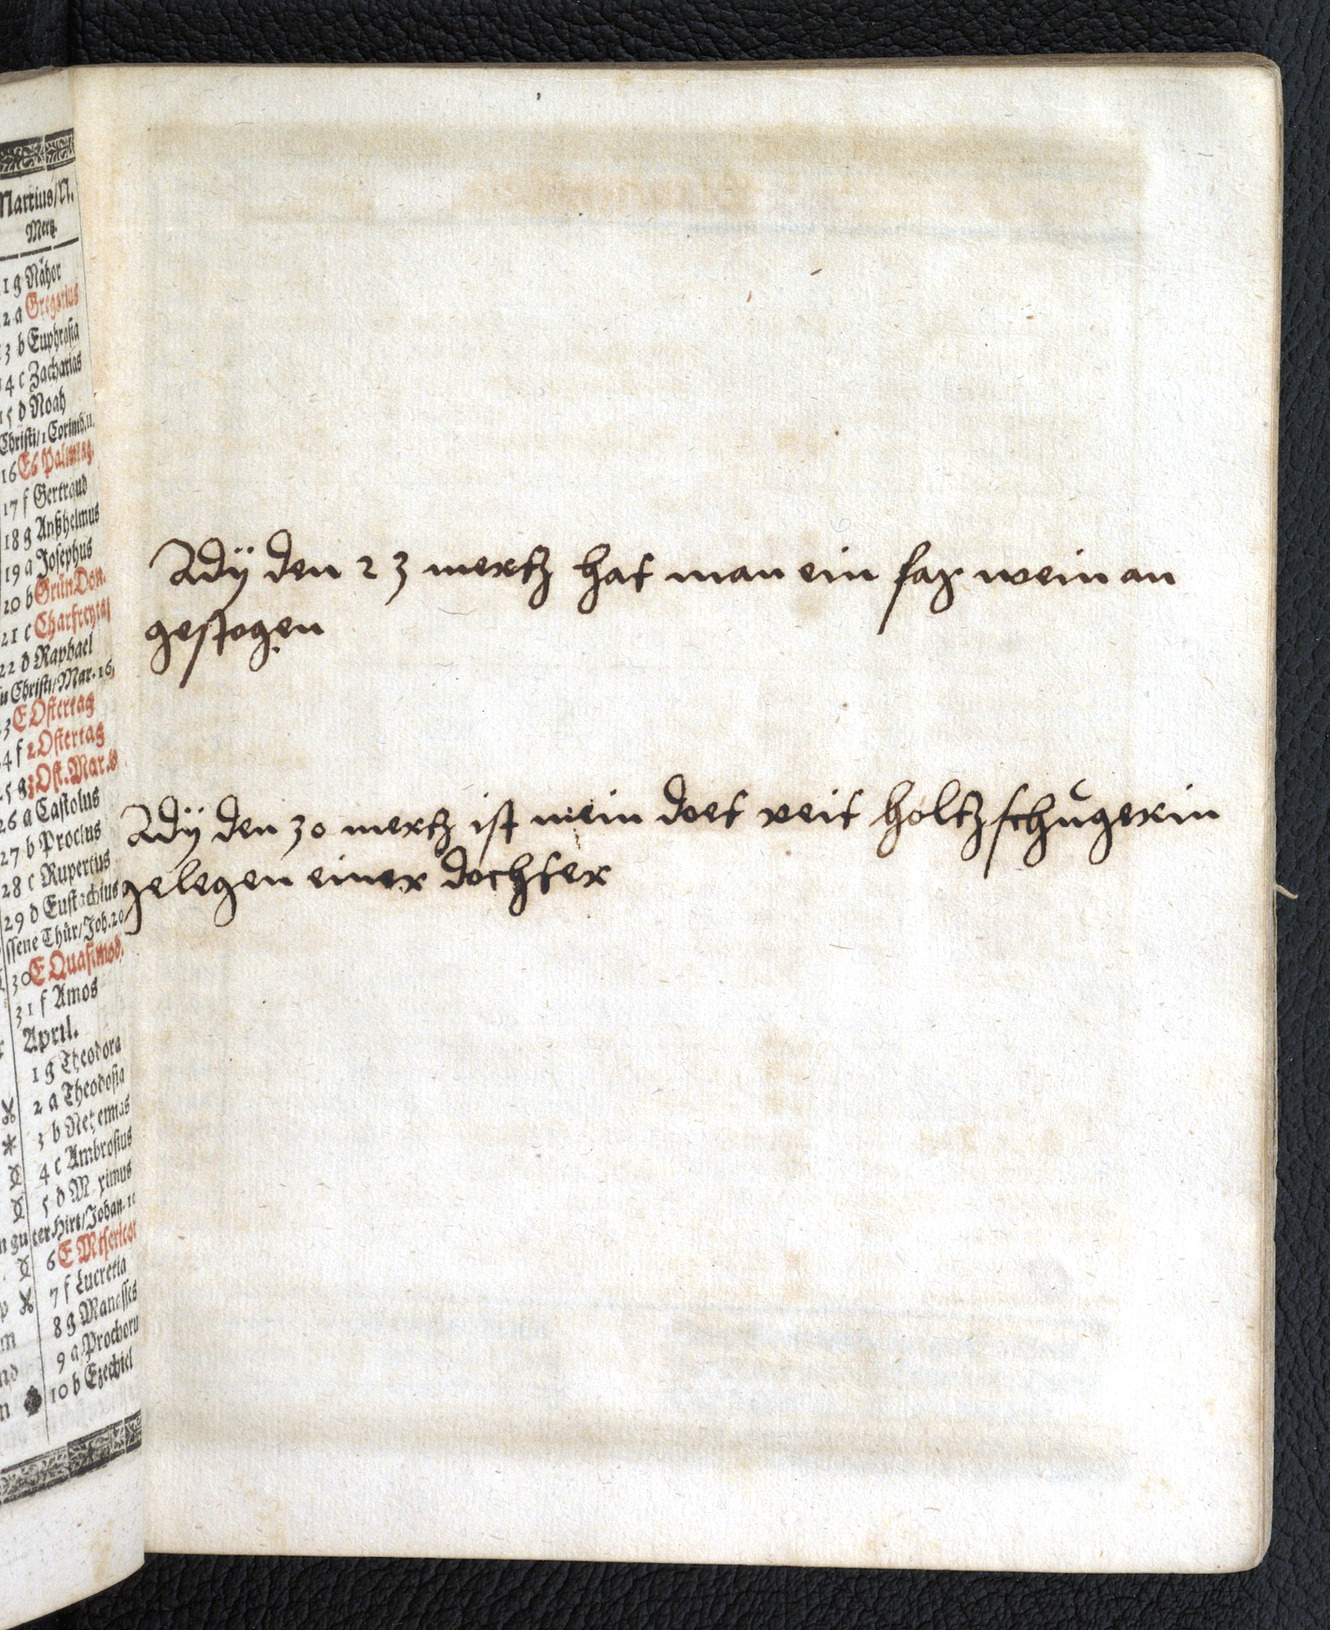 Martius/N.
Mertz.
11 g Nahor
12 a Gregorius
13 b Euphrasia
14 c Zacharias
15 d Noah
Christi/1 Corinth. 11.
16 E6 Palmtag
17 f Gertraud
18 g Anßhelmus
19 a Josephus
20 b GrünDon.
21 c Charfreytag
22 d Raphael
Christi/Mar. 16.
23 E Ostertag
24 f 2 Ostertag
25 g 3 Ost. Mar. v
26 a Castolus
27 b Proclus
28 c Rupertus
29 d Eustachius
ssene Thür/Joh. 20
30 E Quasimod.
31 f Amos
April.
1 g Theodora
2 a Theodosia
3 b Nehemias
4 c Ambrosius
5 d Maximus
guter Hirt/Johan. 10
6 E Misericor
7 f Lucretia
8 g Manasses
9 a Prochoru
10 b Ezechiel
Adÿ den 23 mertz hat man ein faß wein an
gestogen
Adÿ den 30 mertz ist mein doet veit holtzschugerin
gelegen einer dochter